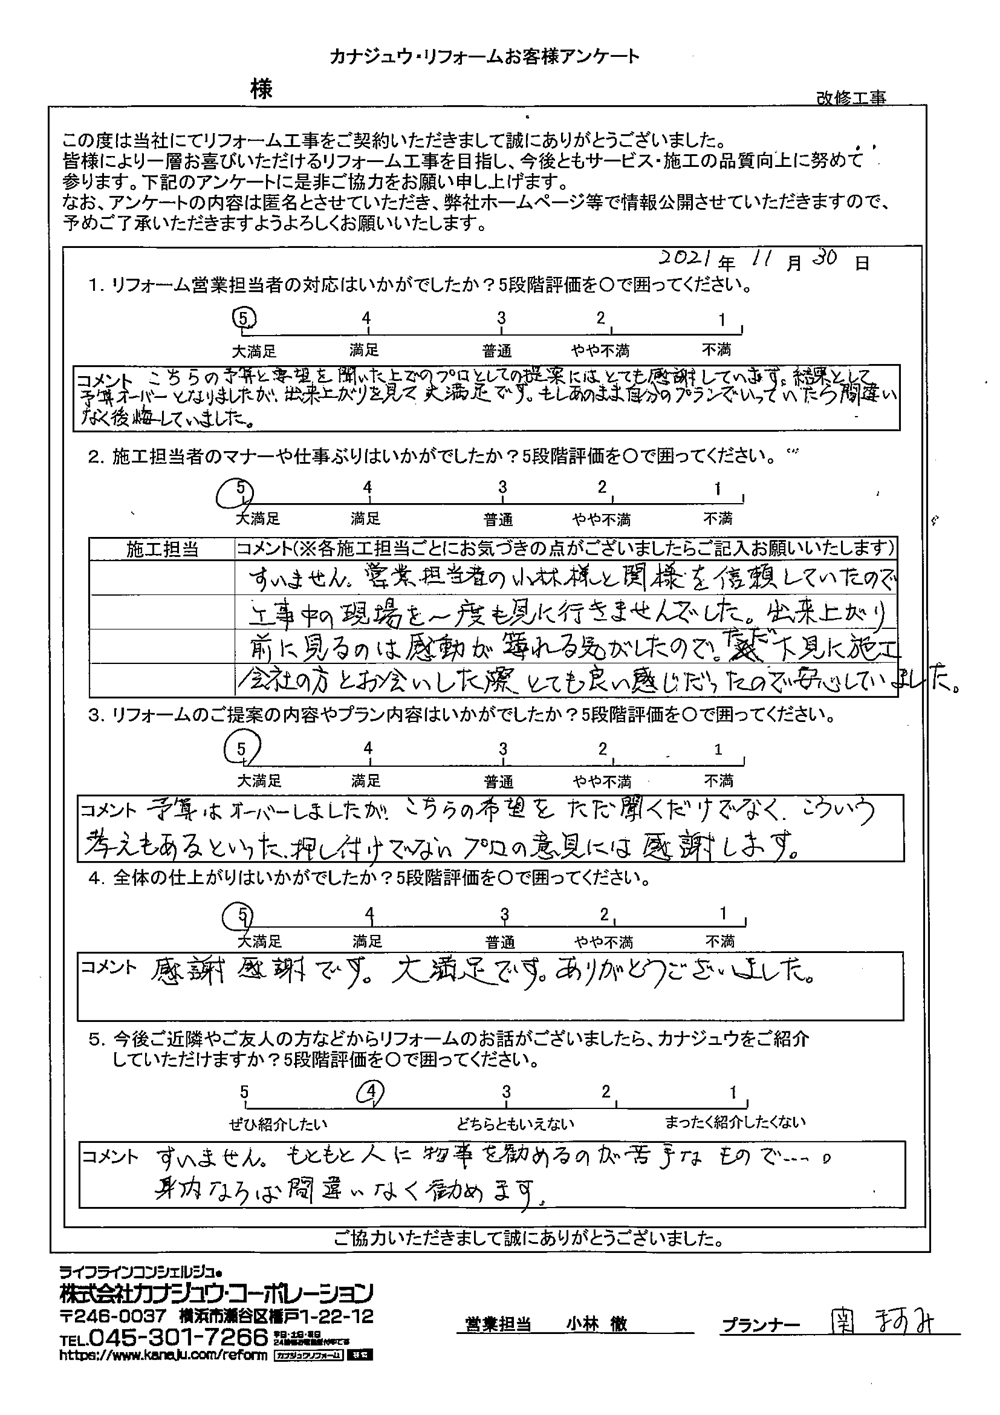 カナジュウ・リフォームお客様アンケート
様
改修工事
この度は当社にてリフォーム工事をご契約いただきまして誠にありがとうございました。
皆様により一層お喜びいただけるリフォーム工事を目指し、今後ともサービス・施工の品質向上に努めて
参ります。下記のアンケートに是非ご協力をお願い申し上げます。
なお、アンケートの内容は匿名とさせていただき、弊社ホームページ等で情報公開させていただきますので、
予めご了承いただきますようよろしくお願いいたします。
2021年 11月 30日
1. リフォーム営業担当者の対応はいかがでしたか?5段階評価を○で囲ってください。
5 4 3 2 1
大満足 満足 普通 やや不満 不満
コメント こちらの予算と要望を聞いた上でのプロとしての提案にはとても感謝しています。結果として
予算オーバーとなりましたが、出来上がりを見て大満足です。もしあのまま自分のプランでいっていたら間違い
なく後悔していました。
2. 施工担当者のマナーや仕事ぶりはいかがでしたか?5段階評価を○で囲ってください。
5 4 3 2 1
大満足 満足 普通 やや不満 不満
施工担当 コメント(※各施工担当ごとにお気づきの点がございましたらご記入お願いいたします)
すいません。営業担当者の小林様と関様を信頼していたので
工事中の現場を一度も見に行きませんでした。出来上がり
前に見るのは感動が薄れる気がしたので。ただ下見に施工
会社の方とお会いした際とても良い感じだったので安心していました。
3. リフォームのご提案の内容やプラン内容はいかがでしたか?5段階評価を○で囲ってください。
5 4 3 2 1
大満足 満足 普通 やや不満 不満
コメント 予算はオーバーしましたが、こちらの希望をただ聞くだけでなく、こういう
考えもあるといった、押し付けでないプロの意見には感謝します。
4. 全体の仕上がりはいかがでしたか?5段階評価を○で囲ってください。
5 4 3 2 1
大満足 満足 普通 やや不満 不満
コメント 感謝感謝です。大満足です。ありがとうございました。
5. 今後ご近隣やご友人の方などからリフォームのお話がございましたら、カナジュウをご紹介
していただけますか?5段階評価を○で囲ってください。
5 4 3 2 1
ぜひ紹介したい どちらともいえない まったく紹介したくない
コメント すいません。もともと人に物事を勧めるのが苦手なもので‥‥。
身内ならば間違いなく勧めます。
ご協力いただきまして誠にありがとうございました。
ライフラインコンシェルジュ®
株式会社カナジュウ・コーポレーション
〒246-0037 横浜市瀬谷区橋戸1-22-12
TEL.045-301-7266
https://www.kanaju.com/reform カナジュウリフォーム 検索
営業担当 小林 徹
プランナー 関 ますみ